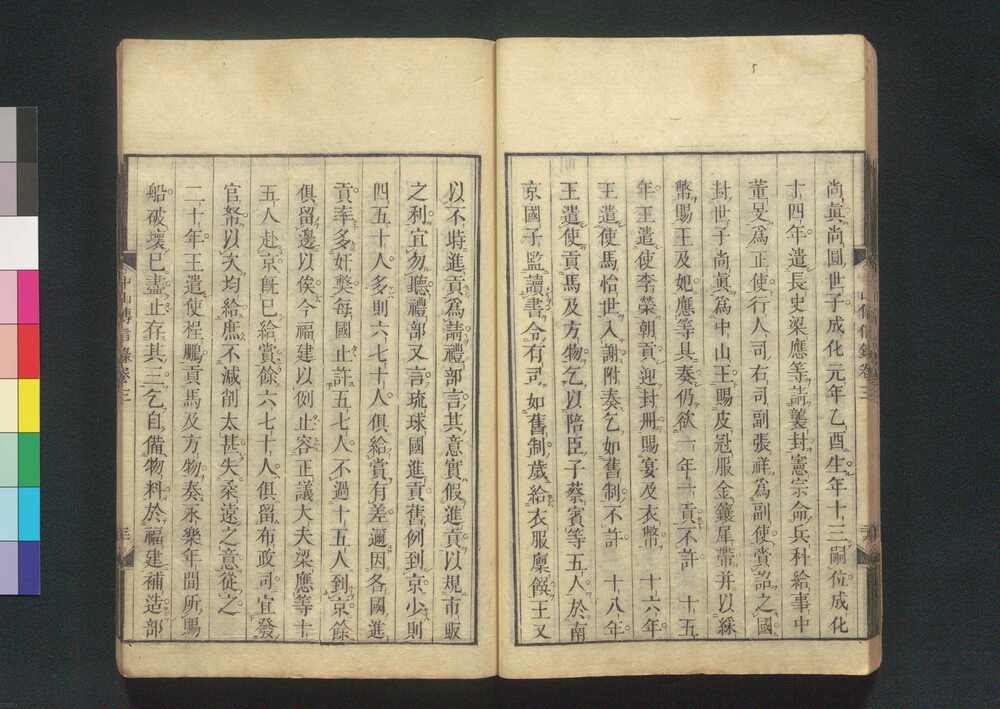 尚眞尚圓世子成化元年乙酉生年十三嗣位成化
十四年遣長史梁應等請襲封憲宗命兵科給事中
董旻爲正使行人司右司副張祥爲副使賫詔之國
封世子尚眞爲中山王賜皮冠服金鑲犀帶并以綵
幣賜王及妃應等具奏仍欲一年一貢不許　十五
年王遣使李榮朝貢迎封册賜宴及衣幣　十六年
王遣使馬怡世入謝附奏乞如舊制不許　十八年
王遣使貢馬及方物乞以陪臣子蔡賓等五人於南
京國子監讀書令有司如舊制歲給衣服廩餼王又
以不時進貢爲請禮部言其意實假進貢以規市販
之利宜勿聽禮部又言琉球國進貢舊例到京少則
四五十人多則六七十人俱給賞有差邇因各國進
貢率多奸弊每國止許五七人不過十五人到京餘
俱留邊以俟今福建以例止容正議大夫梁應等十
五人赴京旣已給賞餘六七十人俱留布政司宜發
官帑以次均給庶不減削太甚失柔遠之意從之
二十年王遣使程鵬貢馬及方物奏永樂年間所賜
船破壞已盡止存其三乞自備物料於福建補造部
中山傳信錄卷三